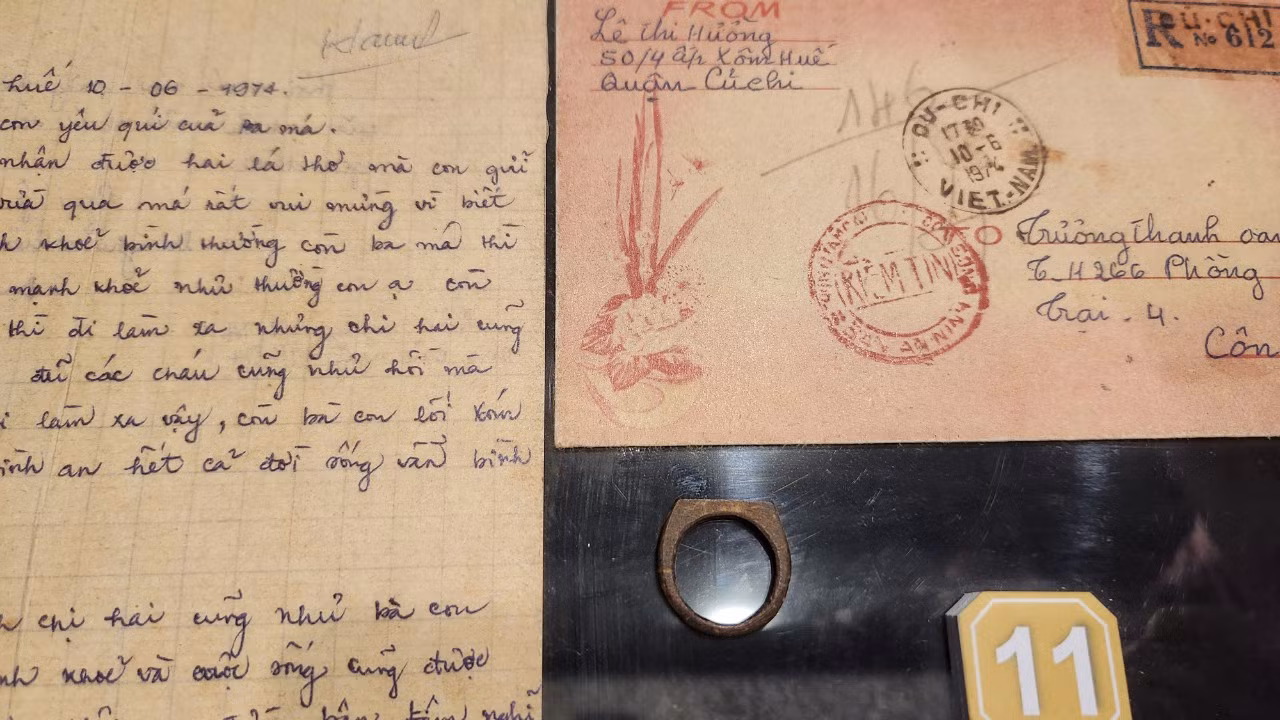 Huế 10 - 06 - 1974.
con yêu quí cuả ba má.
nhận được hai lá thơ mà con gửi
vừã qua má rất vui mừng vì biết
khoẻ bình thường còn ba má thì
mạnh khoẻ như thường con ạ còn
thì đi làm xa nhưng chị hai cũng
đủ các cháu cũng như hồi mà
làm xa vậy, còn bà con lối xóm
bình an hết cả đời sống vẫn bình
chị hai cũng như bà con
khoẻ và cuộc sống cũng được
FROM
Lê Thị Hường
50/4 ấp Xóm Huế
Quận Củ chi
R
Ủ-CHI
No 612
146
CU-CHI
1730
10-6
1974
VIET-NAM
KIỂM TÍN
AN NINH
TO
Trương thanh
T.H266 Phòng
Trại . 4.
Côn
11